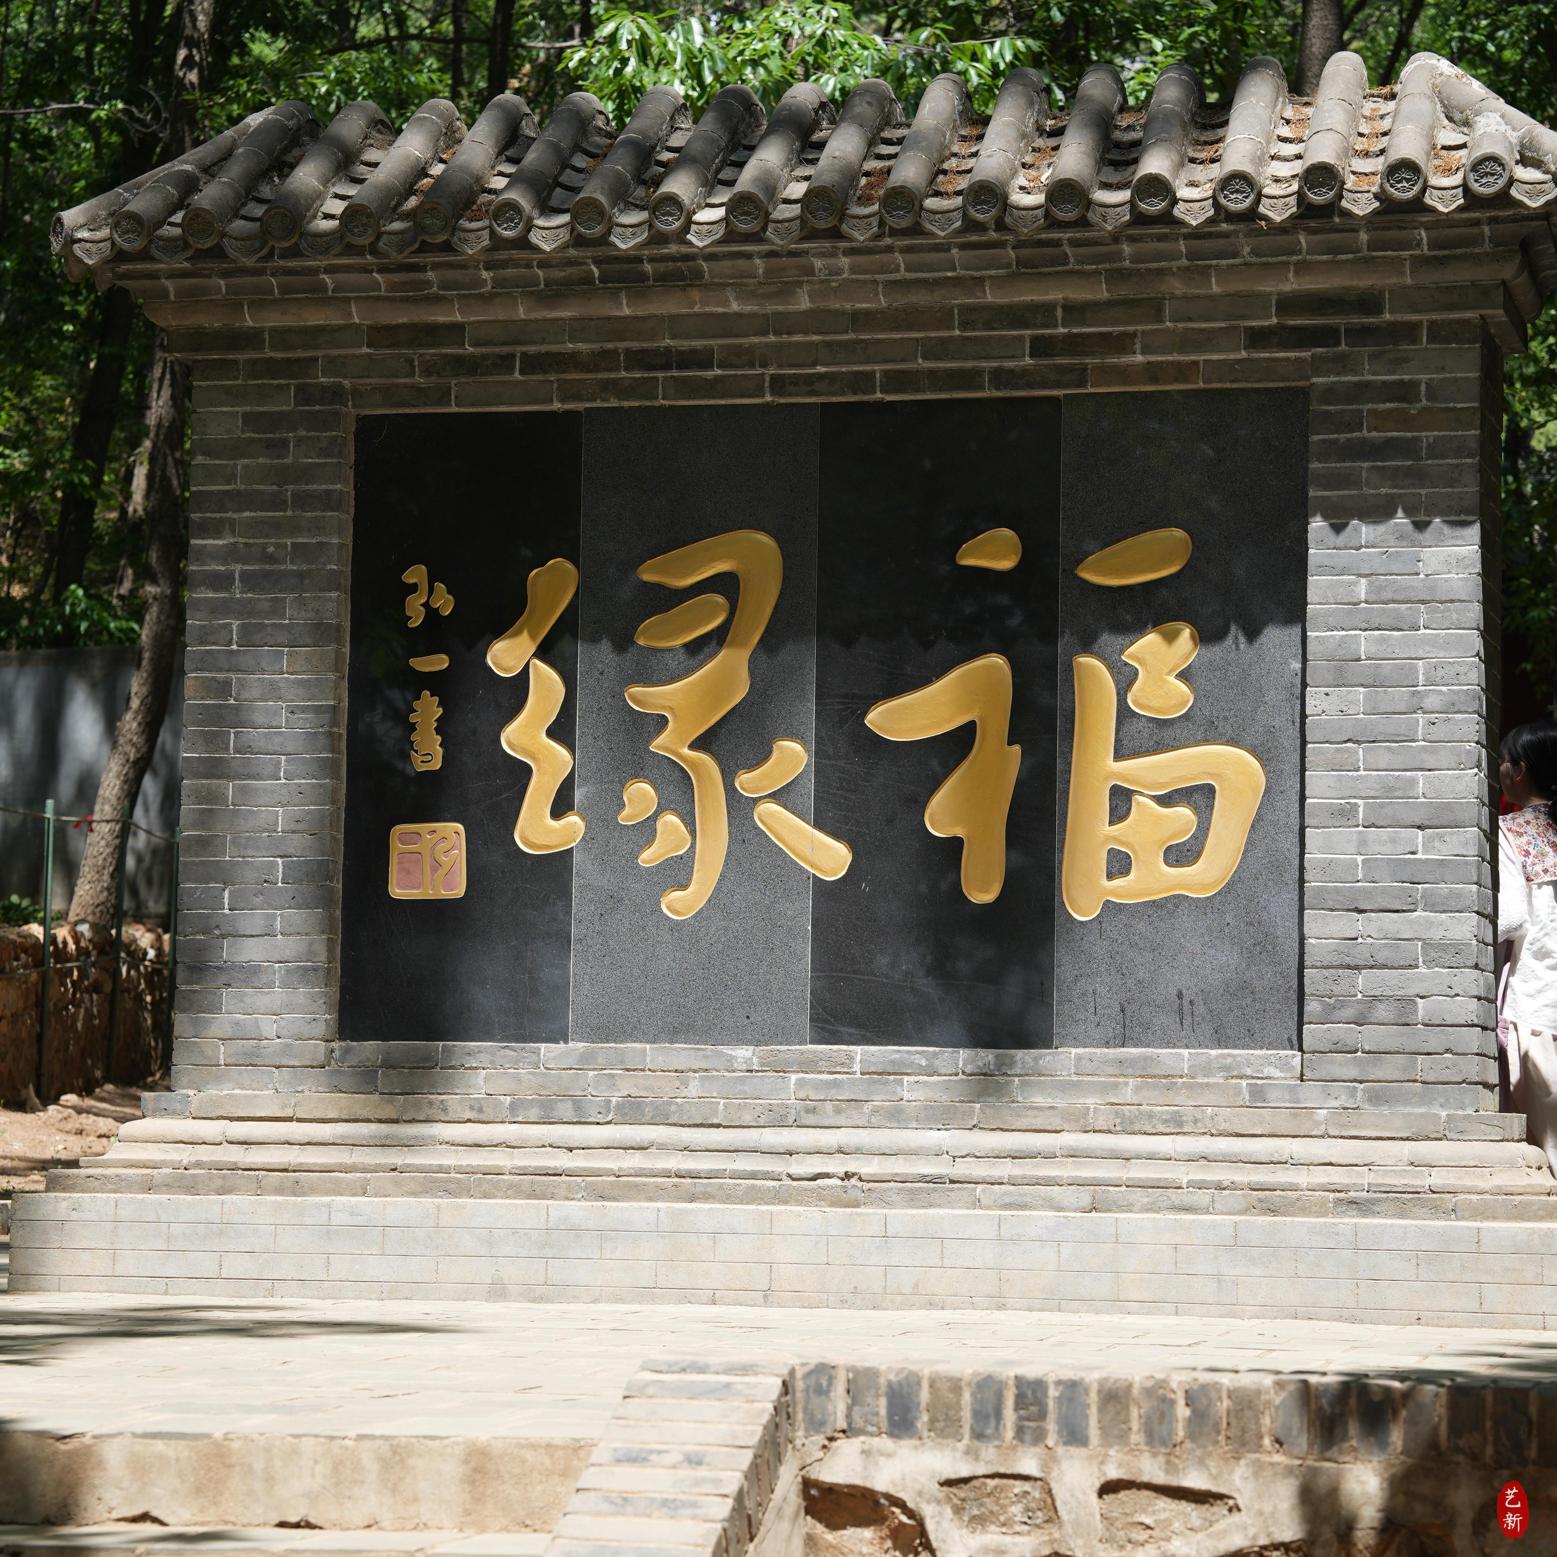 福缘
弘一书
艺新